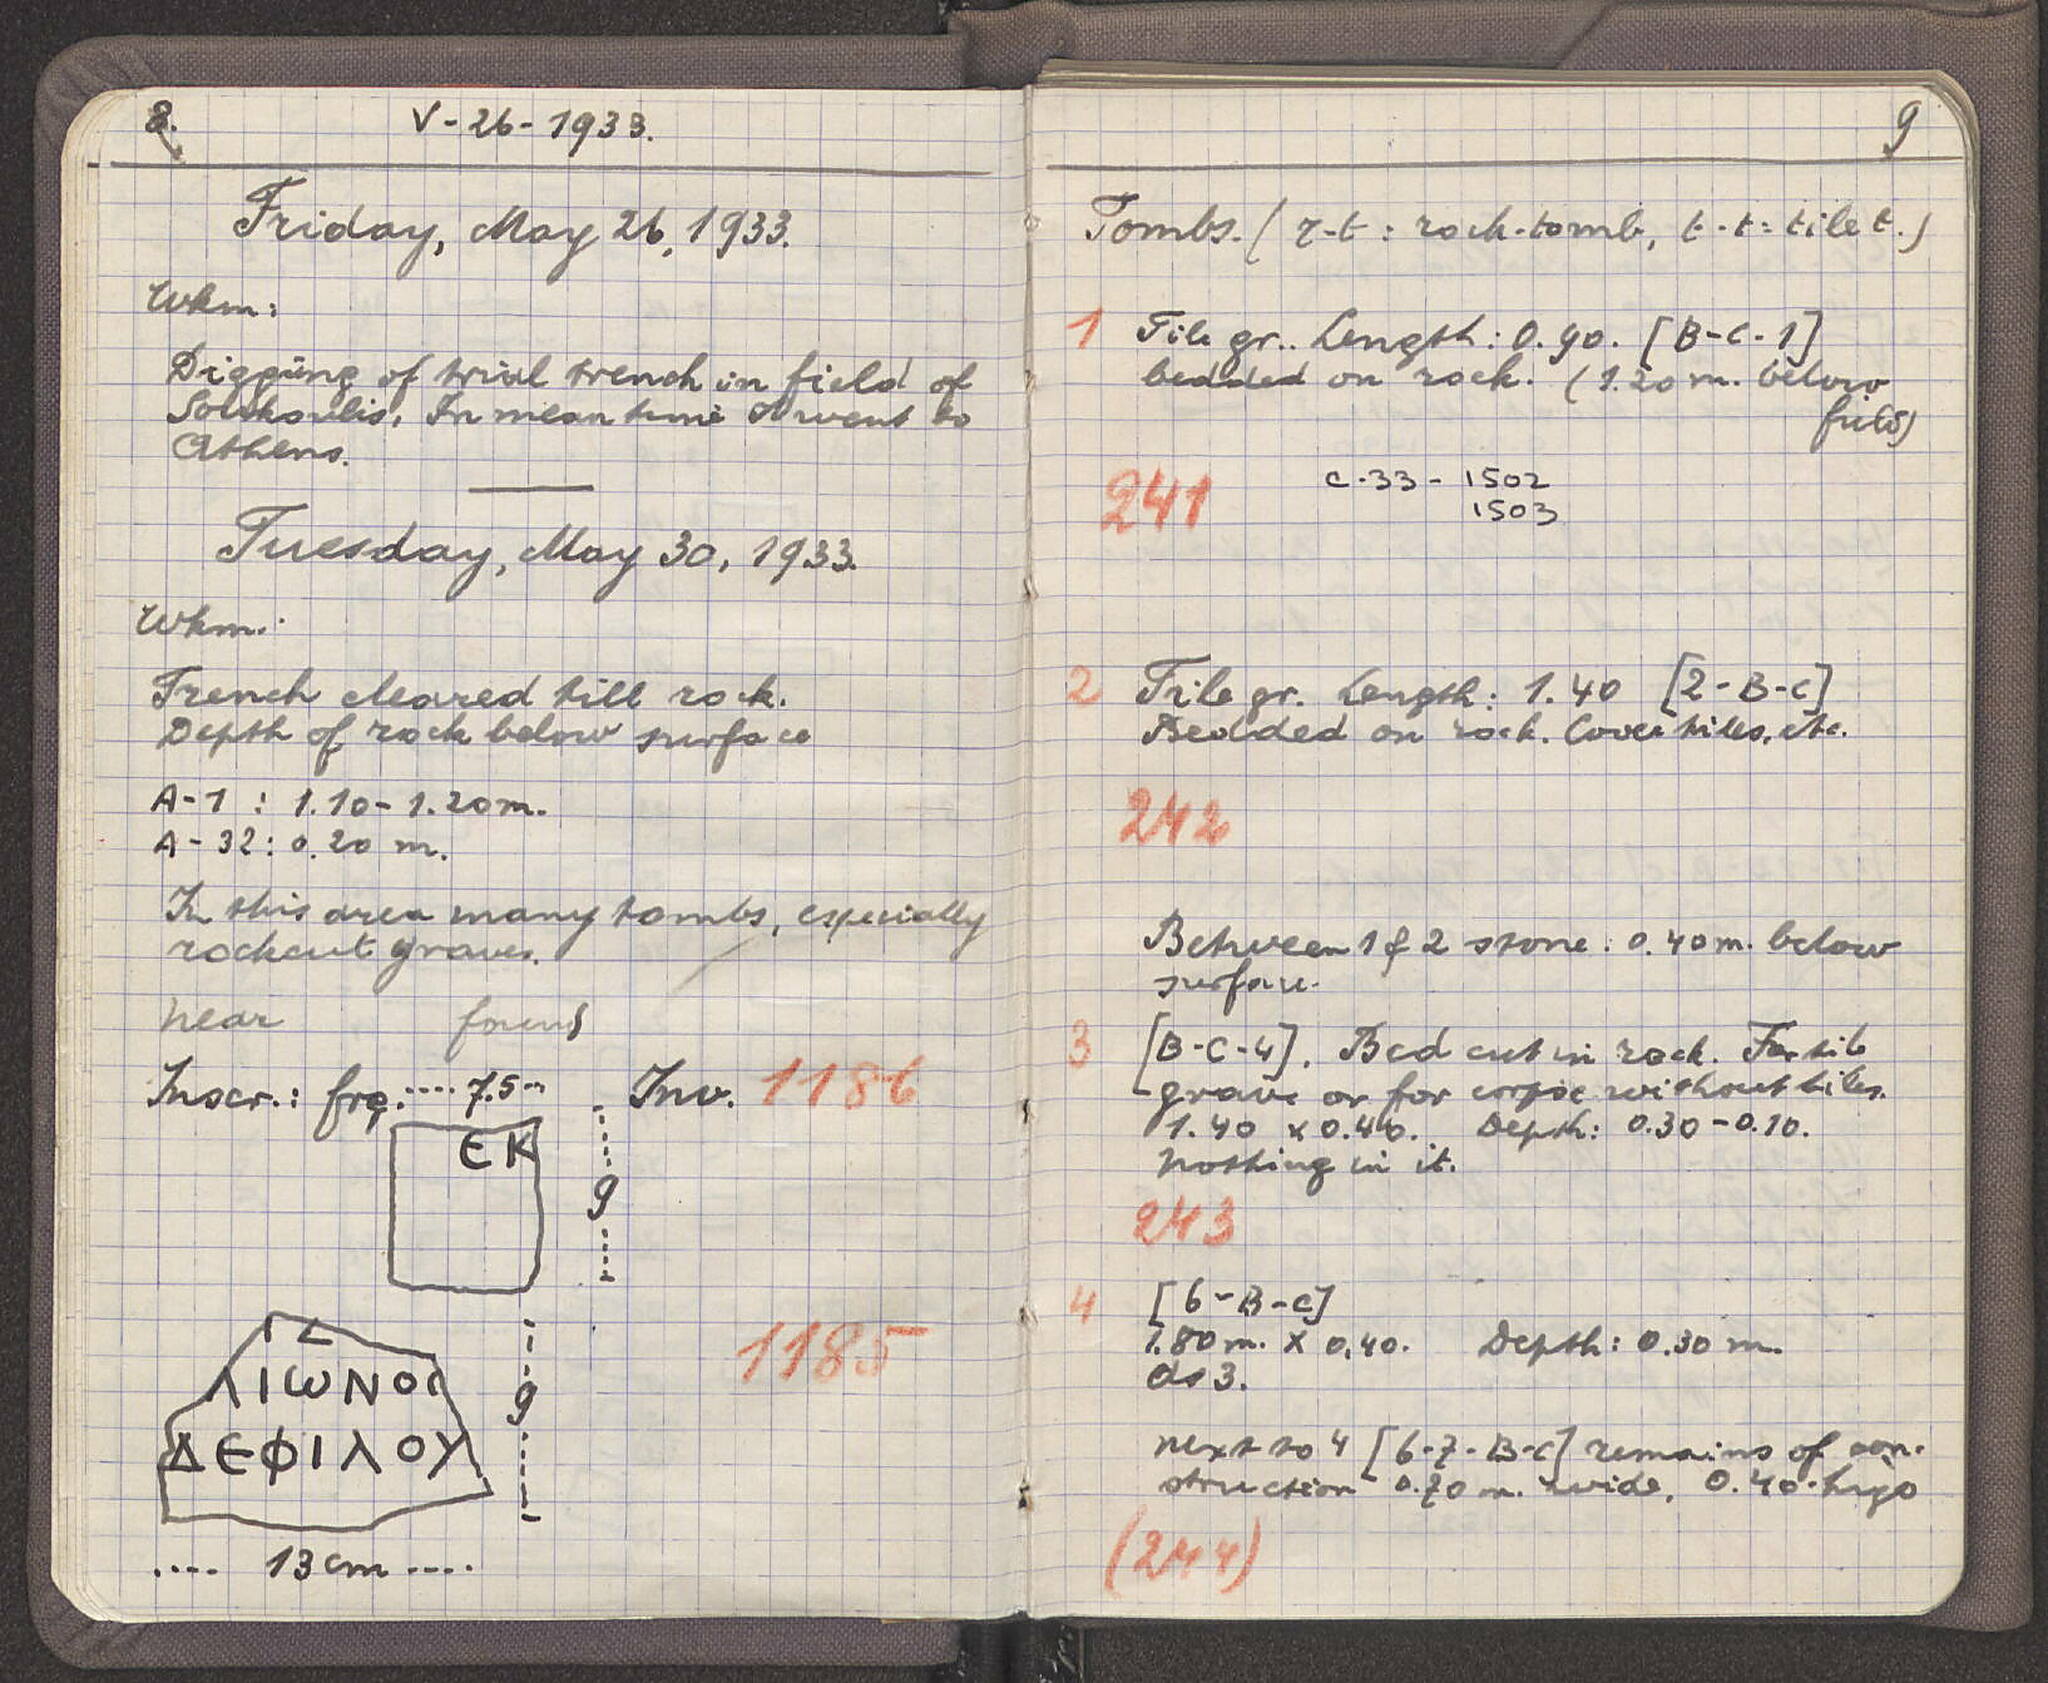 8.
V-26-1933.
Friday, May 26, 1933.
Wkm:
Digging of trial trench in field of
In mean time I went to
Athens.
Tuesday, May 30, 1933.
Wkm.:
Trench cleared till rock.
Depth of rock below surface
A-1 : 1.10-1.20m.
A-32: 0.20 m.
In this area many tombs, especially
rockcut graves.
near found
Inscr.: frg. .... 7.5 Inv. 1186
ЄK
9
1185
ΛΙωΝΟΣ
9
ΔЄΦΙΛΟΥ
.... 13cm ....
9
Tombs. (r-t: rock-tomb, t-t: tile t.)
1 Tile gr.. Length: 0.90. [B-C-1]
bedded on rock. (1.20m. below
field)
241
C-33-1502
1503
2 Tile gr. Length: 1.40 [2-B-C]
Bedded on rock. Cover tiles, etc.
242
Between 1 & 2 stone: 0.40m. below
surface.
3 [B-C-4]. Bed cut in rock. For tile
grave or for corpse without tiles.
1.40 x 0.40. Depth: 0.30-0.10.
Nothing in it.
243
4 [6-B-C]
1.80m. x 0.40. Depth: 0.30 m.
As 3.
Next to 4 [6-7-B-C] remains of con-
struction 0.70 m. wide, 0.40 high
(244)